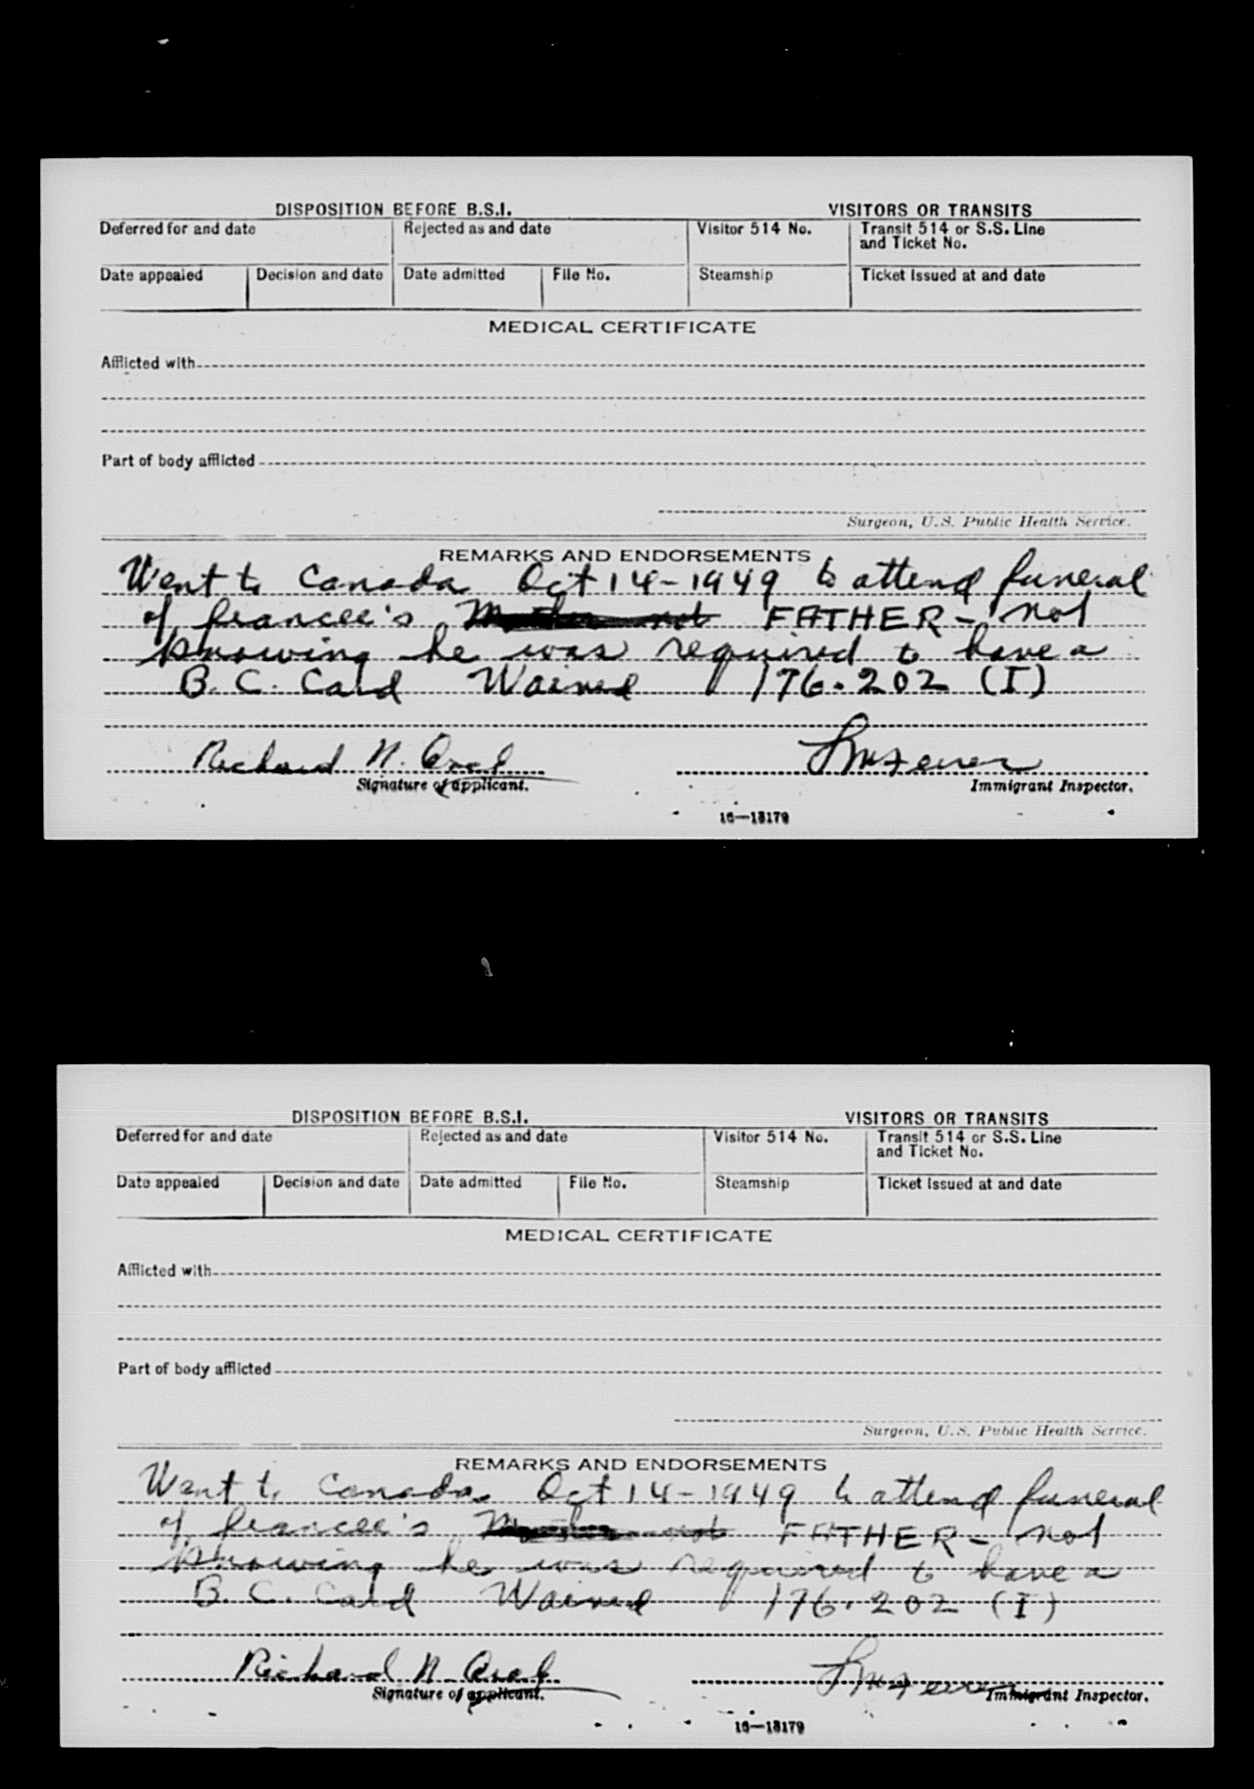 DISPOSITION BEFORE B.S.I. VISITORS OR TRANSITS
Deferred for and date Rejected as and date Visitor 514 No. Transit 514 or S.S. Line and Ticket No.
Date appealed Decision and date Date admitted File No. Steamship Ticket issued at and date
MEDICAL CERTIFICATE
Afflicted with
Part of body afflicted
Surgeon, U.S. Public Health Service.
REMARKS AND ENDORSEMENTS
Went to Canada Oct 14-1949 to attend funeral
of feancee's FATHER - not
knowing he was required to have a
B.C. Card Waived 176.202 (I)
Richard N.
Signature of applicant. Immigrant Inspector.
16—13179
DISPOSITION BEFORE B.S.I. VISITORS OR TRANSITS
Deferred for and date Rejected as and date Visitor 514 No. Transit 514 or S.S. Line and Ticket No.
Date appealed Decision and date Date admitted File No. Steamship Ticket issued at and date
MEDICAL CERTIFICATE
Afflicted with
Part of body afflicted
Surgeon, U.S. Public Health Service.
REMARKS AND ENDORSEMENTS
Went to Canada Oct 14-1949 to attend funeral
of feancee's FATHER - not
knowing he was required to have a
B.C. Card Waived 176.202 (I)
Richard N.
Signature of applicant. Immigrant Inspector.
16—13179